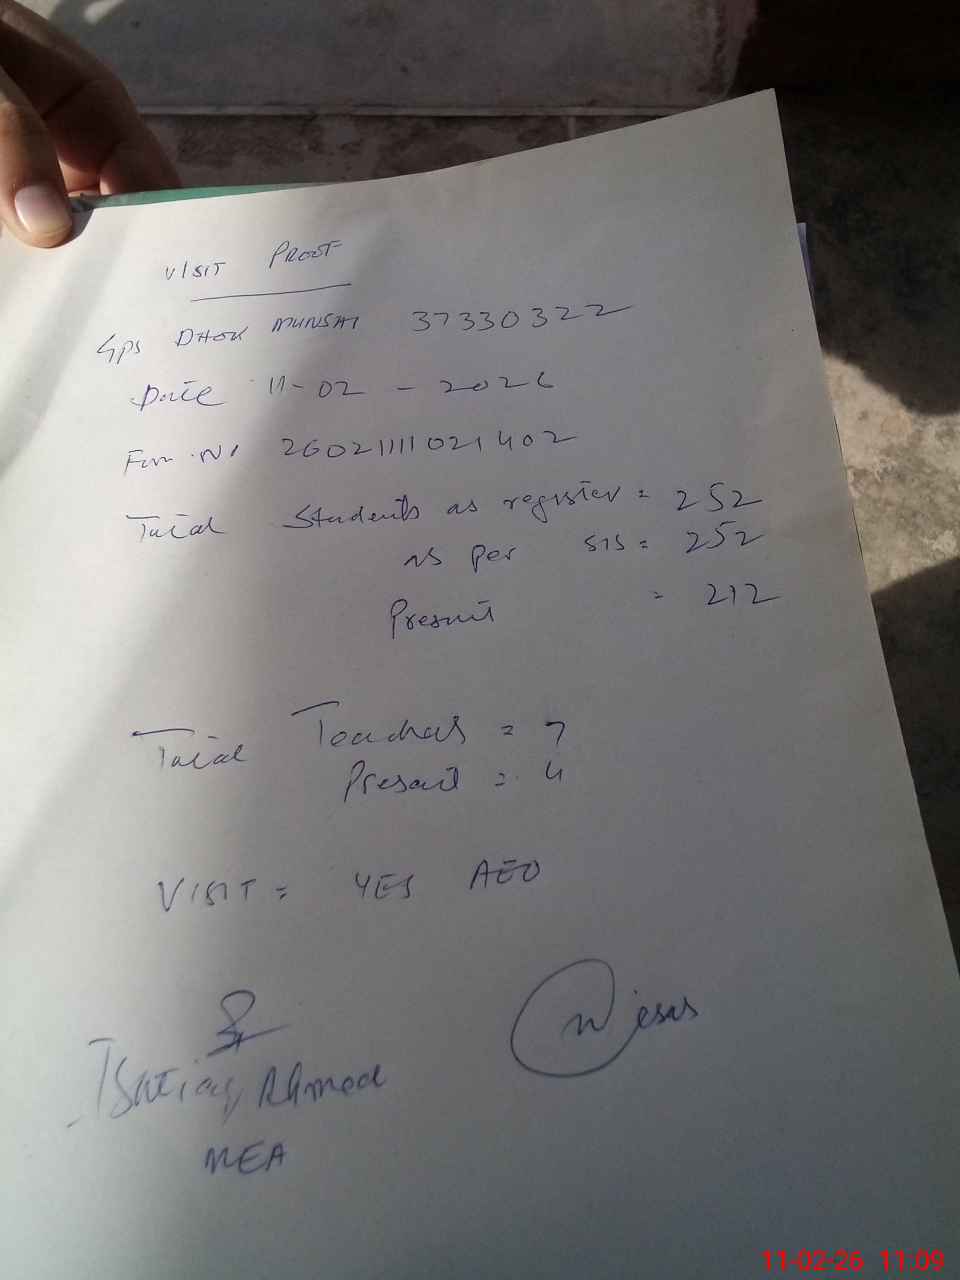 VISIT PROOF
Gps DHOK MUNSHI 37330322
Date 11-02-2026
26021111021402
Total Students as register = 252
as per SIS = 252
Present = 212
Total Teachers = 7
Present = 4
VISIT = YES AEO
Ahmed
MEA
11-02-26 11:09